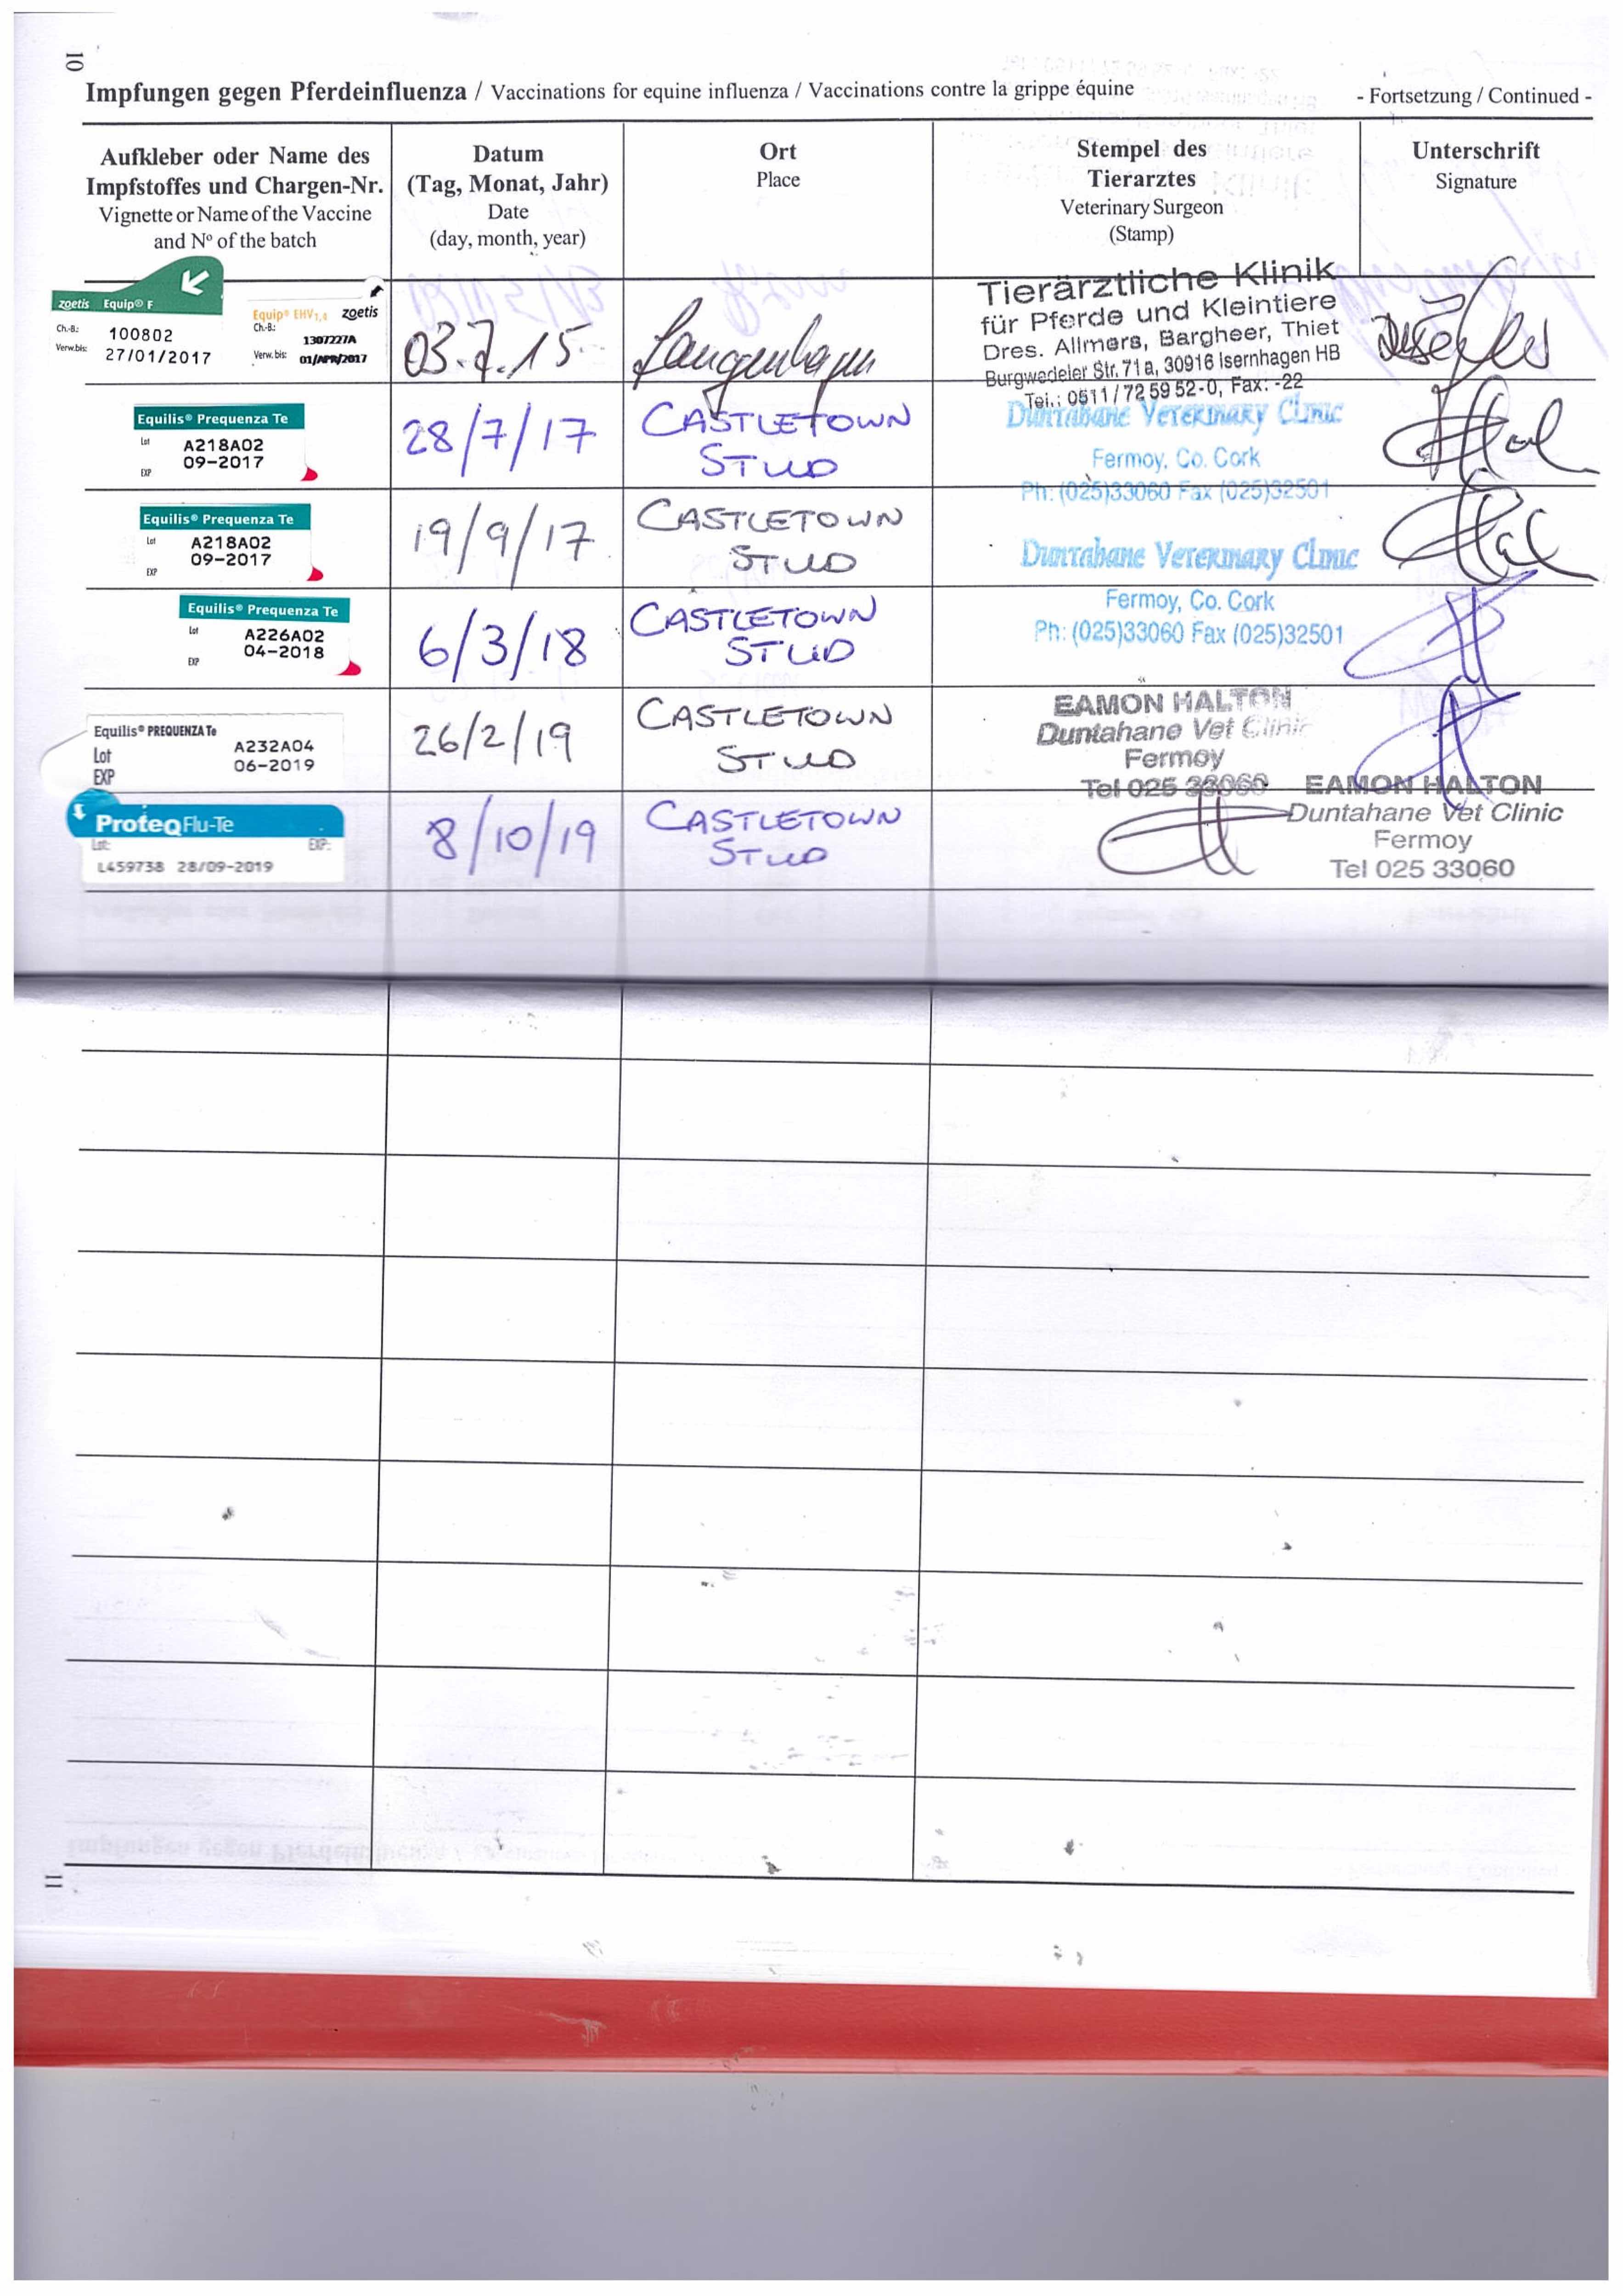 10
Impfungen gegen Pferdeinfluenza / Vaccinations for equine influenza / Vaccinations contre la grippe équine
- Fortsetzung / Continued -
Aufkleber oder Name des
Impfstoffes und Chargen-Nr.
Vignette or Name of the Vaccine
and Nº of the batch
Datum
(Tag, Monat, Jahr)
Date
(day, month, year)
Ort
Place
Stempel des
Tierarztes
Veterinary Surgeon
(Stamp)
Unterschrift
Signature
zoetis Equip® F
Ch.-B.: 100802
Verw.bis: 27/01/2017
Equip® EHV1,4 zoetis
Ch.-B.: 1307227A
Verw. bis: 01/APR/2017
03.7.15
Langenhagen
Tierärztliche Klinik
für Pferde und Kleintiere
Dres. Allmers, Bargheer, Thiet
Burgwedeler Str. 71a, 30916 Isernhagen HB
Tel.: 0511 / 72 59 52-0, Fax: -22
Equilis® Prequenza Te
Lot A218A02
09-2017
EXP
28/7/17
CASTLETOWN
STUD
Duntahane Veterinary Clinic
Fermoy, Co. Cork
Ph: (025)33060 Fax (025)32501
Equilis® Prequenza Te
Lot A218A02
09-2017
EXP
19/9/17
CASTLETOWN
STUD
Duntahane Veterinary Clinic
Fermoy, Co. Cork
Ph: (025)33060 Fax (025)32501
Equilis® Prequenza Te
Lot A226A02
04-2018
EXP
6/3/18
CASTLETOWN
STUD
Equilis® PREQUENZA Te
Lot A232A04
EXP 06-2019
26/2/19
CASTLETOWN
STUD
EAMON HALTON
Duntahane Vet Clinic
Fermoy
Tel 025 33060
ProteqFlu-Te
Lot: EXP:
L459738 28/09-2019
8/10/19
CASTLETOWN
STUD
EAMON HALTON
Duntahane Vet Clinic
Fermoy
Tel 025 33060
11